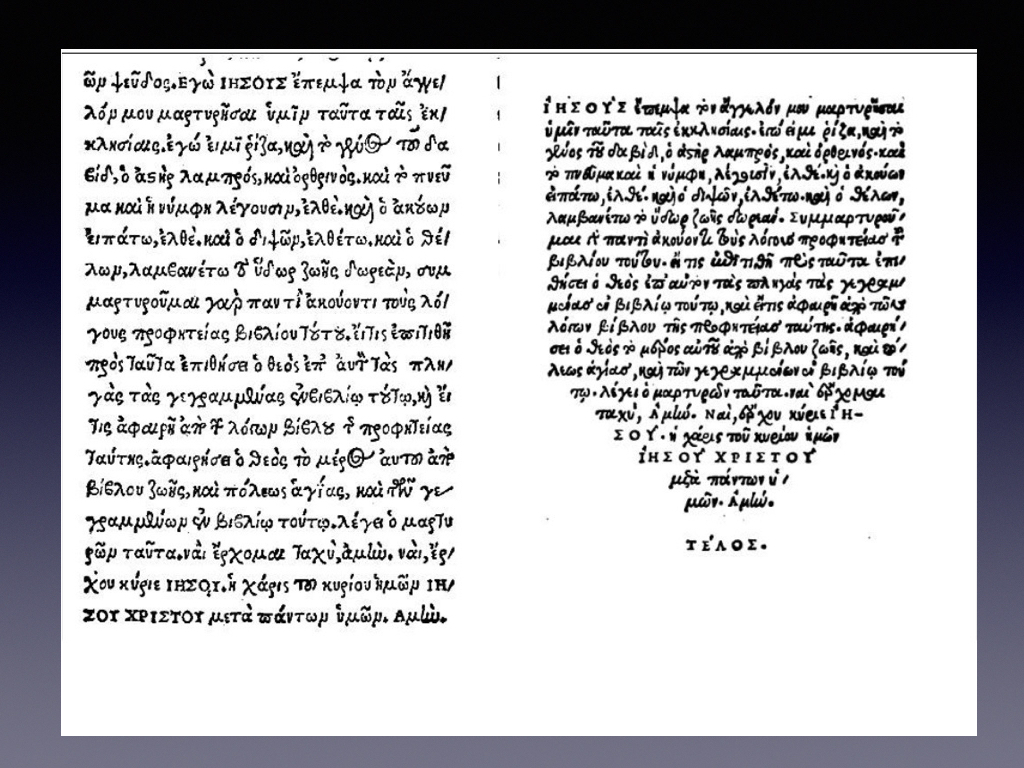 ῶν ψεῦδος. Εγὼ ΙΗΣΟΥΣ ἔπεμψα τὸν ἄγγε/
λόν μου μαρτυρῆσαι ὑμῖν ταῦτα ταῖς ἐκ/
κλησίαις. ἐγώ εἰμὶ ῥίζα, καὶ τὸ γένος τοῦ δα
βίδ, ὁ ἀστὴρ λαμπρός, καὶ ὀρθρινὸς. καὶ τὸ πνεῦ
μα καὶ ἡ νύμφη λέγουσιν, ἐλθέ. καὶ ὁ ἀκούων
εἰπάτω, ἐλθέ. καὶ ὁ διψῶν, ἐλθέτω. καὶ ὁ θέ/
λων, λαμβανέτω τὸ ὕδωρ ζωῆς δωρεὰν, συμ
μαρτυροῦμαι γὰρ παντὶ ἀκούοντι τοὺς λό/
γους προφητείας βιβλίου τούτου. εἴ τις ἐπιτιθῇ
πρὸς ταῦτα ἐπιθήσει ὁ θεὸς ἐπ᾽ αὐτὸν τὰς πλη/
γὰς τὰς γεγραμμένας ἐν βιβλίῳ τούτῳ, καὶ εἴ
τις ἀφαιρῇ ἀπὸ τῶν λόγων βίβλου τῆς προφητείας
ταύτης. ἀφαιρήσει ὁ θεὸς τὸ μέρος αὐτοῦ ἀπὸ
βίβλου ζωῆς, καὶ πόλεως ἁγίας, καὶ τῶν γε
γραμμένων ἐν βιβλίῳ τούτῳ. λέγει ὁ μαρτυ
ρῶν ταῦτα. ναὶ ἔρχομαι ταχύ, ἀμήν. ναὶ, ἔρ/
χου κύριε ΙΗΣΟΥ. ἡ χάρις τοῦ κυρίου ἡμῶν ΙΗ/
ΣΟΥ ΧΡΙΣΤΟΥ μετὰ πάντων ὑμῶν. Αμήν.
ἸΗΣΟΥ͂Σ ἔπεμψα τὸν ἄγγελόν μου μαρτυρῆσαι
ὑμῖν ταῦτα ταῖς ἐκκλησίαις. ἐγώ εἰμι ῥίζα, καὶ τὸ
γένος τοῦ δαβίδ, ὁ ἀστὴρ λαμπρὸς, καὶ ὀρθρινός. καὶ
τὸ πνεῦμα καὶ ἡ νύμφη, λέγουσιν, ἐλθέ. καὶ ὁ ἀκούων
εἰπάτω, ἐλθέ. καὶ ὁ διψῶν, ἐλθέτω. καὶ ὁ θέλων,
λαμβανέτω τὸ ὕδωρ ζωῆς δωρεάν. Συμμαρτυροῦ/
μαι παντὶ ἀκούοντι τοὺς λόγους προφητείας τοῦ
βιβλίου τούτου. εἴ τις ἐπιτιθῇ πρὸς ταῦτα ἐπι/
θήσει ὁ θεὸς ἐπ᾽ αὐτὸν τὰς πληγὰς τὰς γεγραμ/
μένας ἐν βιβλίῳ τούτῳ, καὶ εἴ τις ἀφαιρῇ ἀπὸ τῶν
λόγων βίβλου τῆς προφητείας ταύτης. ἀφαιρή/
σει ὁ θεὸς τὸ μέρος αὐτοῦ ἀπὸ βίβλου ζωῆς, καὶ πό/
λεως ἁγίας, καὶ τῶν γεγραμμένων ἐν βιβλίῳ τού
τῳ. λέγει ὁ μαρτυρῶν ταῦτα. ναὶ ἔρχομαι
ταχὺ, Ἀμήν. Ναὶ, ἔρχου κύριε ἸΗ-
ΣΟΥ. ἡ χάρις τοῦ κυρίου ἡμῶν
ἸΗΣΟΥ ΧΡΙΣΤΟΥ
μετὰ πάντων ὑ/
μῶν. Ἀμήν.
ΤΕΛΟΣ.